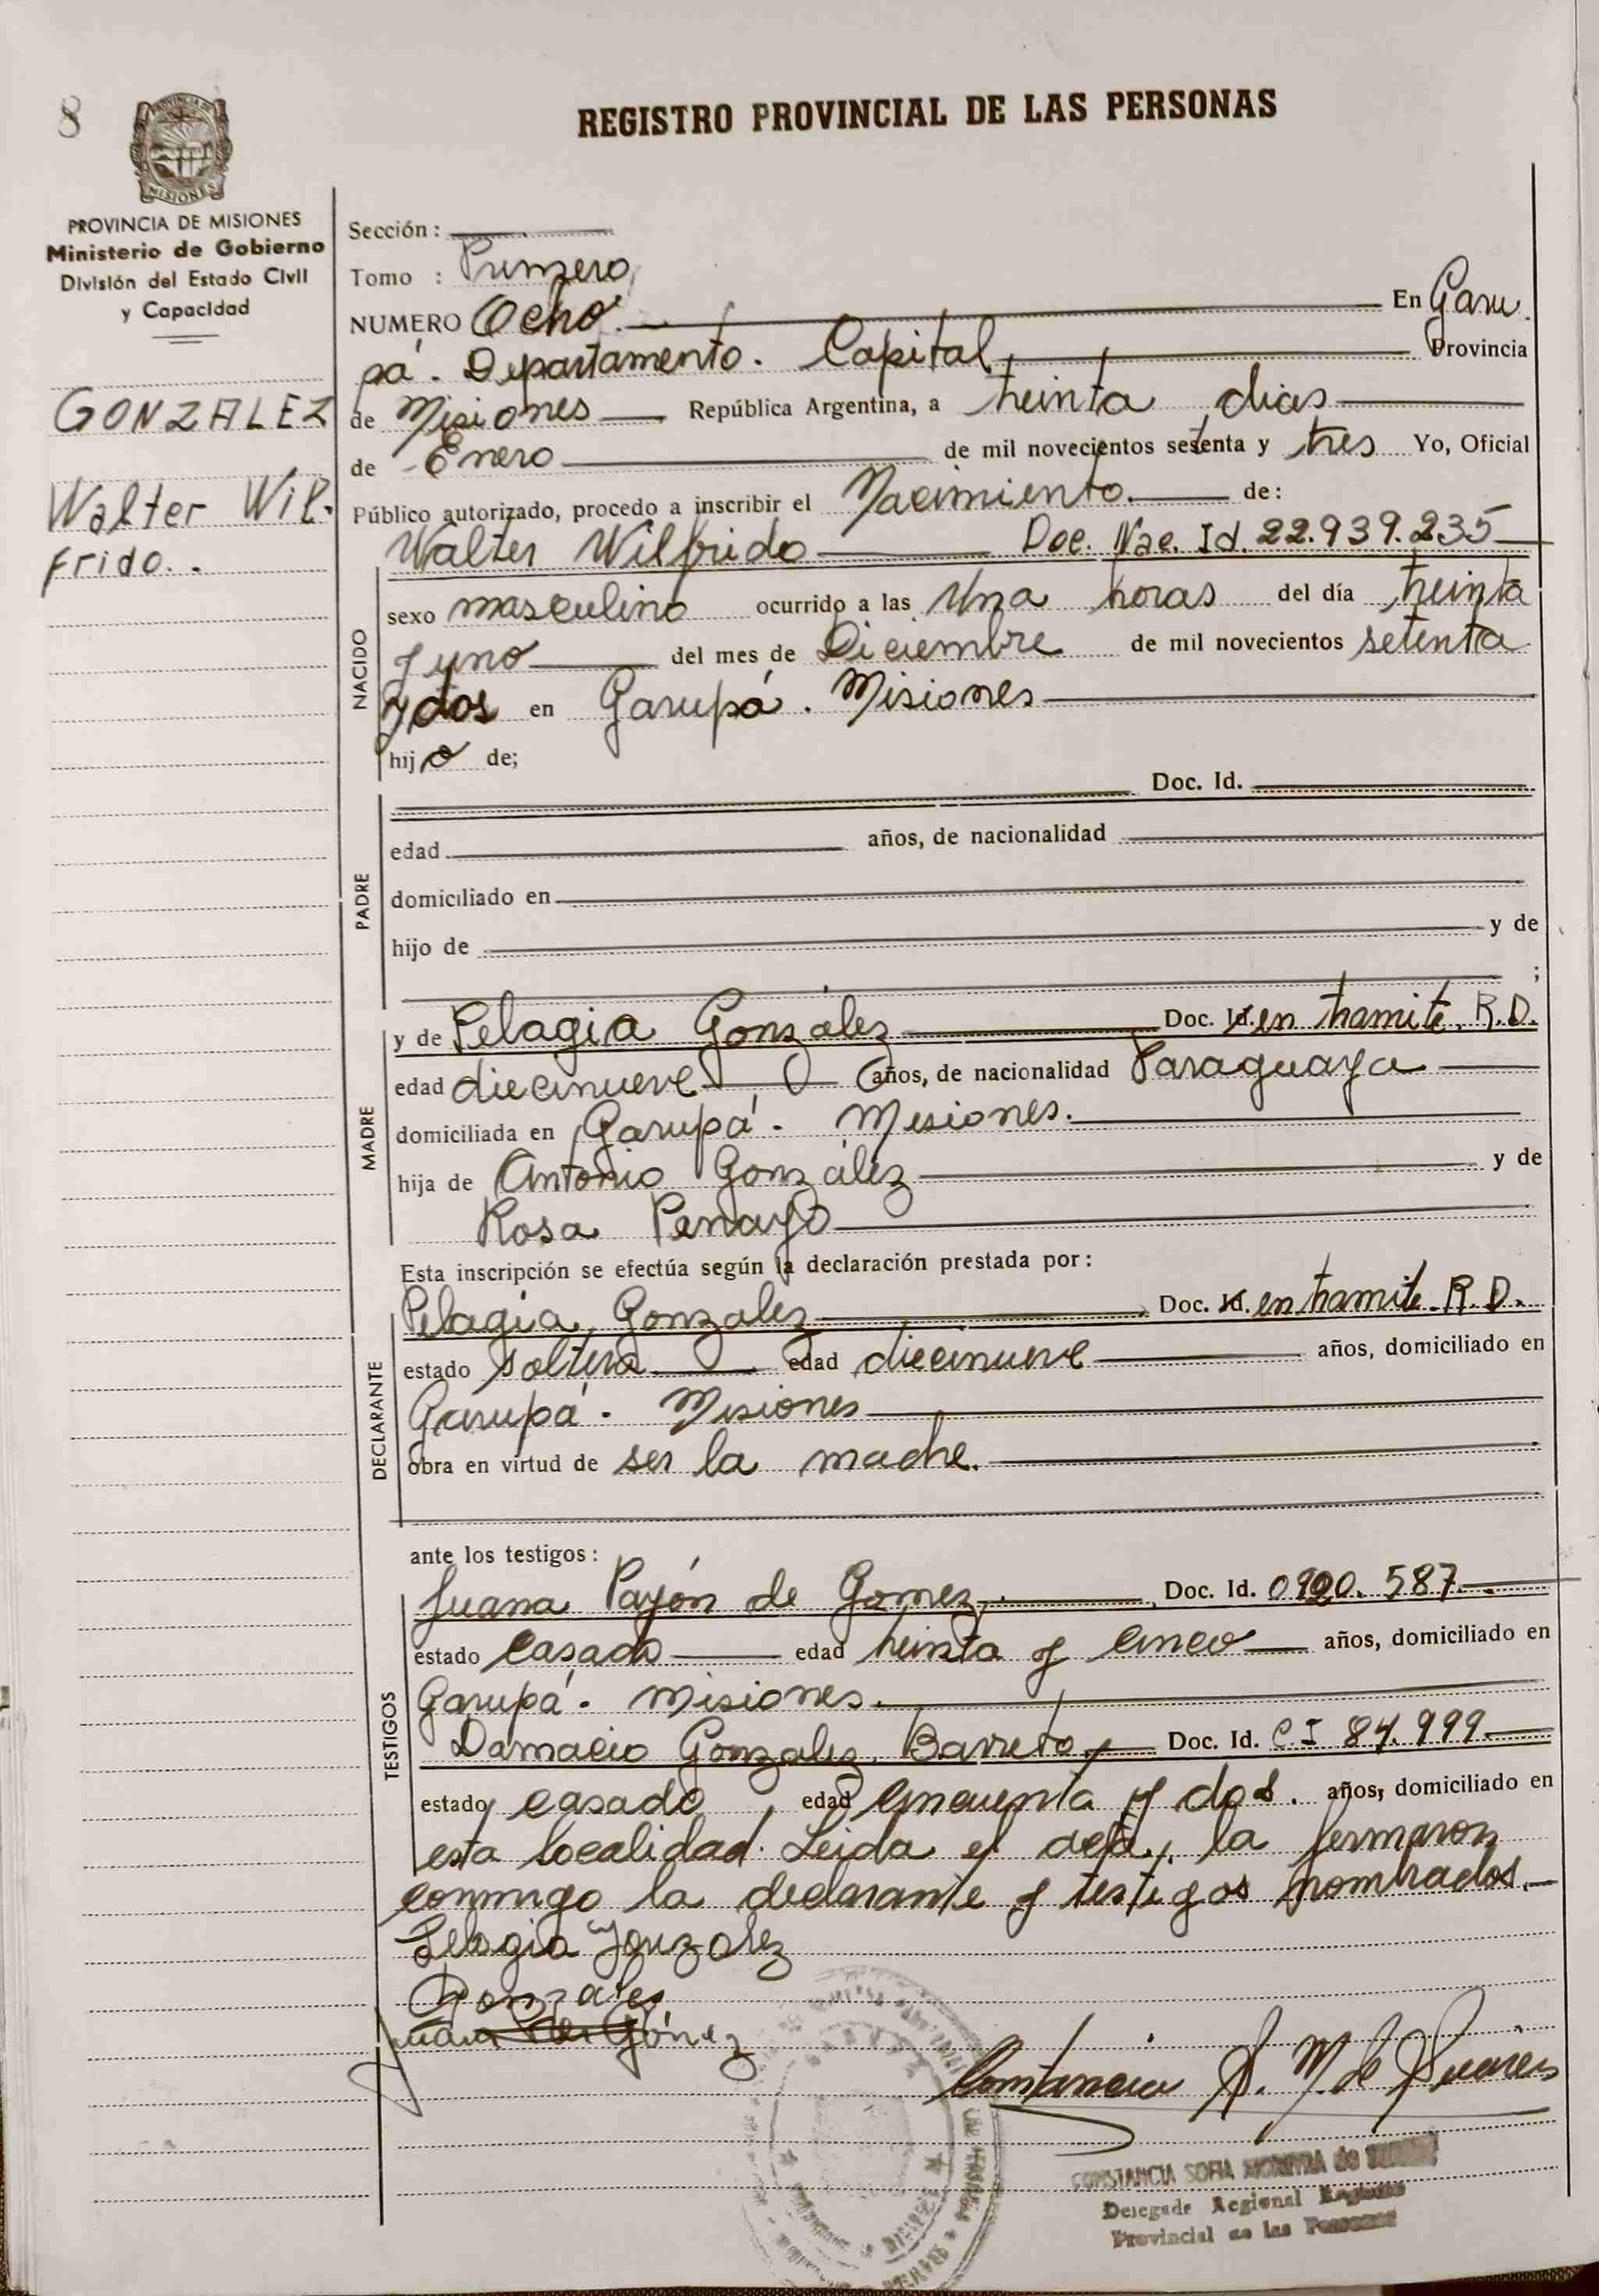 8
REGISTRO PROVINCIAL DE LAS PERSONAS
PROVINCIA DE
MISIONES
PROVINCIA DE MISIONES
Ministerio de Gobierno
División del Estado Civil
y Capacidad
GONZALEZ
Walter Wil-
frido..
Sección:
Tomo : Primero
NUMERO Ocho. En Garu
pá. Departamento. Capital. Provincia
de Misiones República Argentina, a treinta dias
de Enero de mil novecientos setenta y tres Yo, Oficial
Público autorizado, procedo a inscribir el Nacimiento. de:
Walter Wilfrido Doc. Nac. Id. 22.939.235
NACIDO
sexo masculino ocurrido a las Una horas del día treinta
y uno del mes de Diciembre de mil novecientos setenta
y dos en Garupá. Misiones
hijo de;
PADRE
Doc. Id.
edad años, de nacionalidad
domiciliado en
hijo de y de
;
MADRE
y de Pelagia González Doc. Id. en tramite. R.D.
edad diecinueve años, de nacionalidad Paraguaya
domiciliada en Garupá. Misiones.
hija de Antonio González y de
Rosa Penayo
Esta inscripción se efectúa según la declaración prestada por:
DECLARANTE
Pelagia Gonzalez Doc. Id. en tramite. R.D.
estado soltera edad diecinueve años, domiciliado en
Garupá. Misiones
obra en virtud de ser la madre.
ante los testigos:
TESTIGOS
Juana Payón de Gomez Doc. Id. 0.920.587.
estado casado edad treinta y cinco años, domiciliado en
Garupá. Misiones.
Damacio Gonzalez Barreto Doc. Id. C.I 84.999
estado casado, edad cincuenta y dos. años, domiciliado en
esta localidad. Leida el acta, la fermaron
conmigo la declarante y testigos nombrados.
Pelagia Gonzalez
Gonzales
Juana Gómez
Constancia S. M. de Suarez
CONSTANCIA SOFIA de
Delegada Regional Registro
Provincial de las Personas